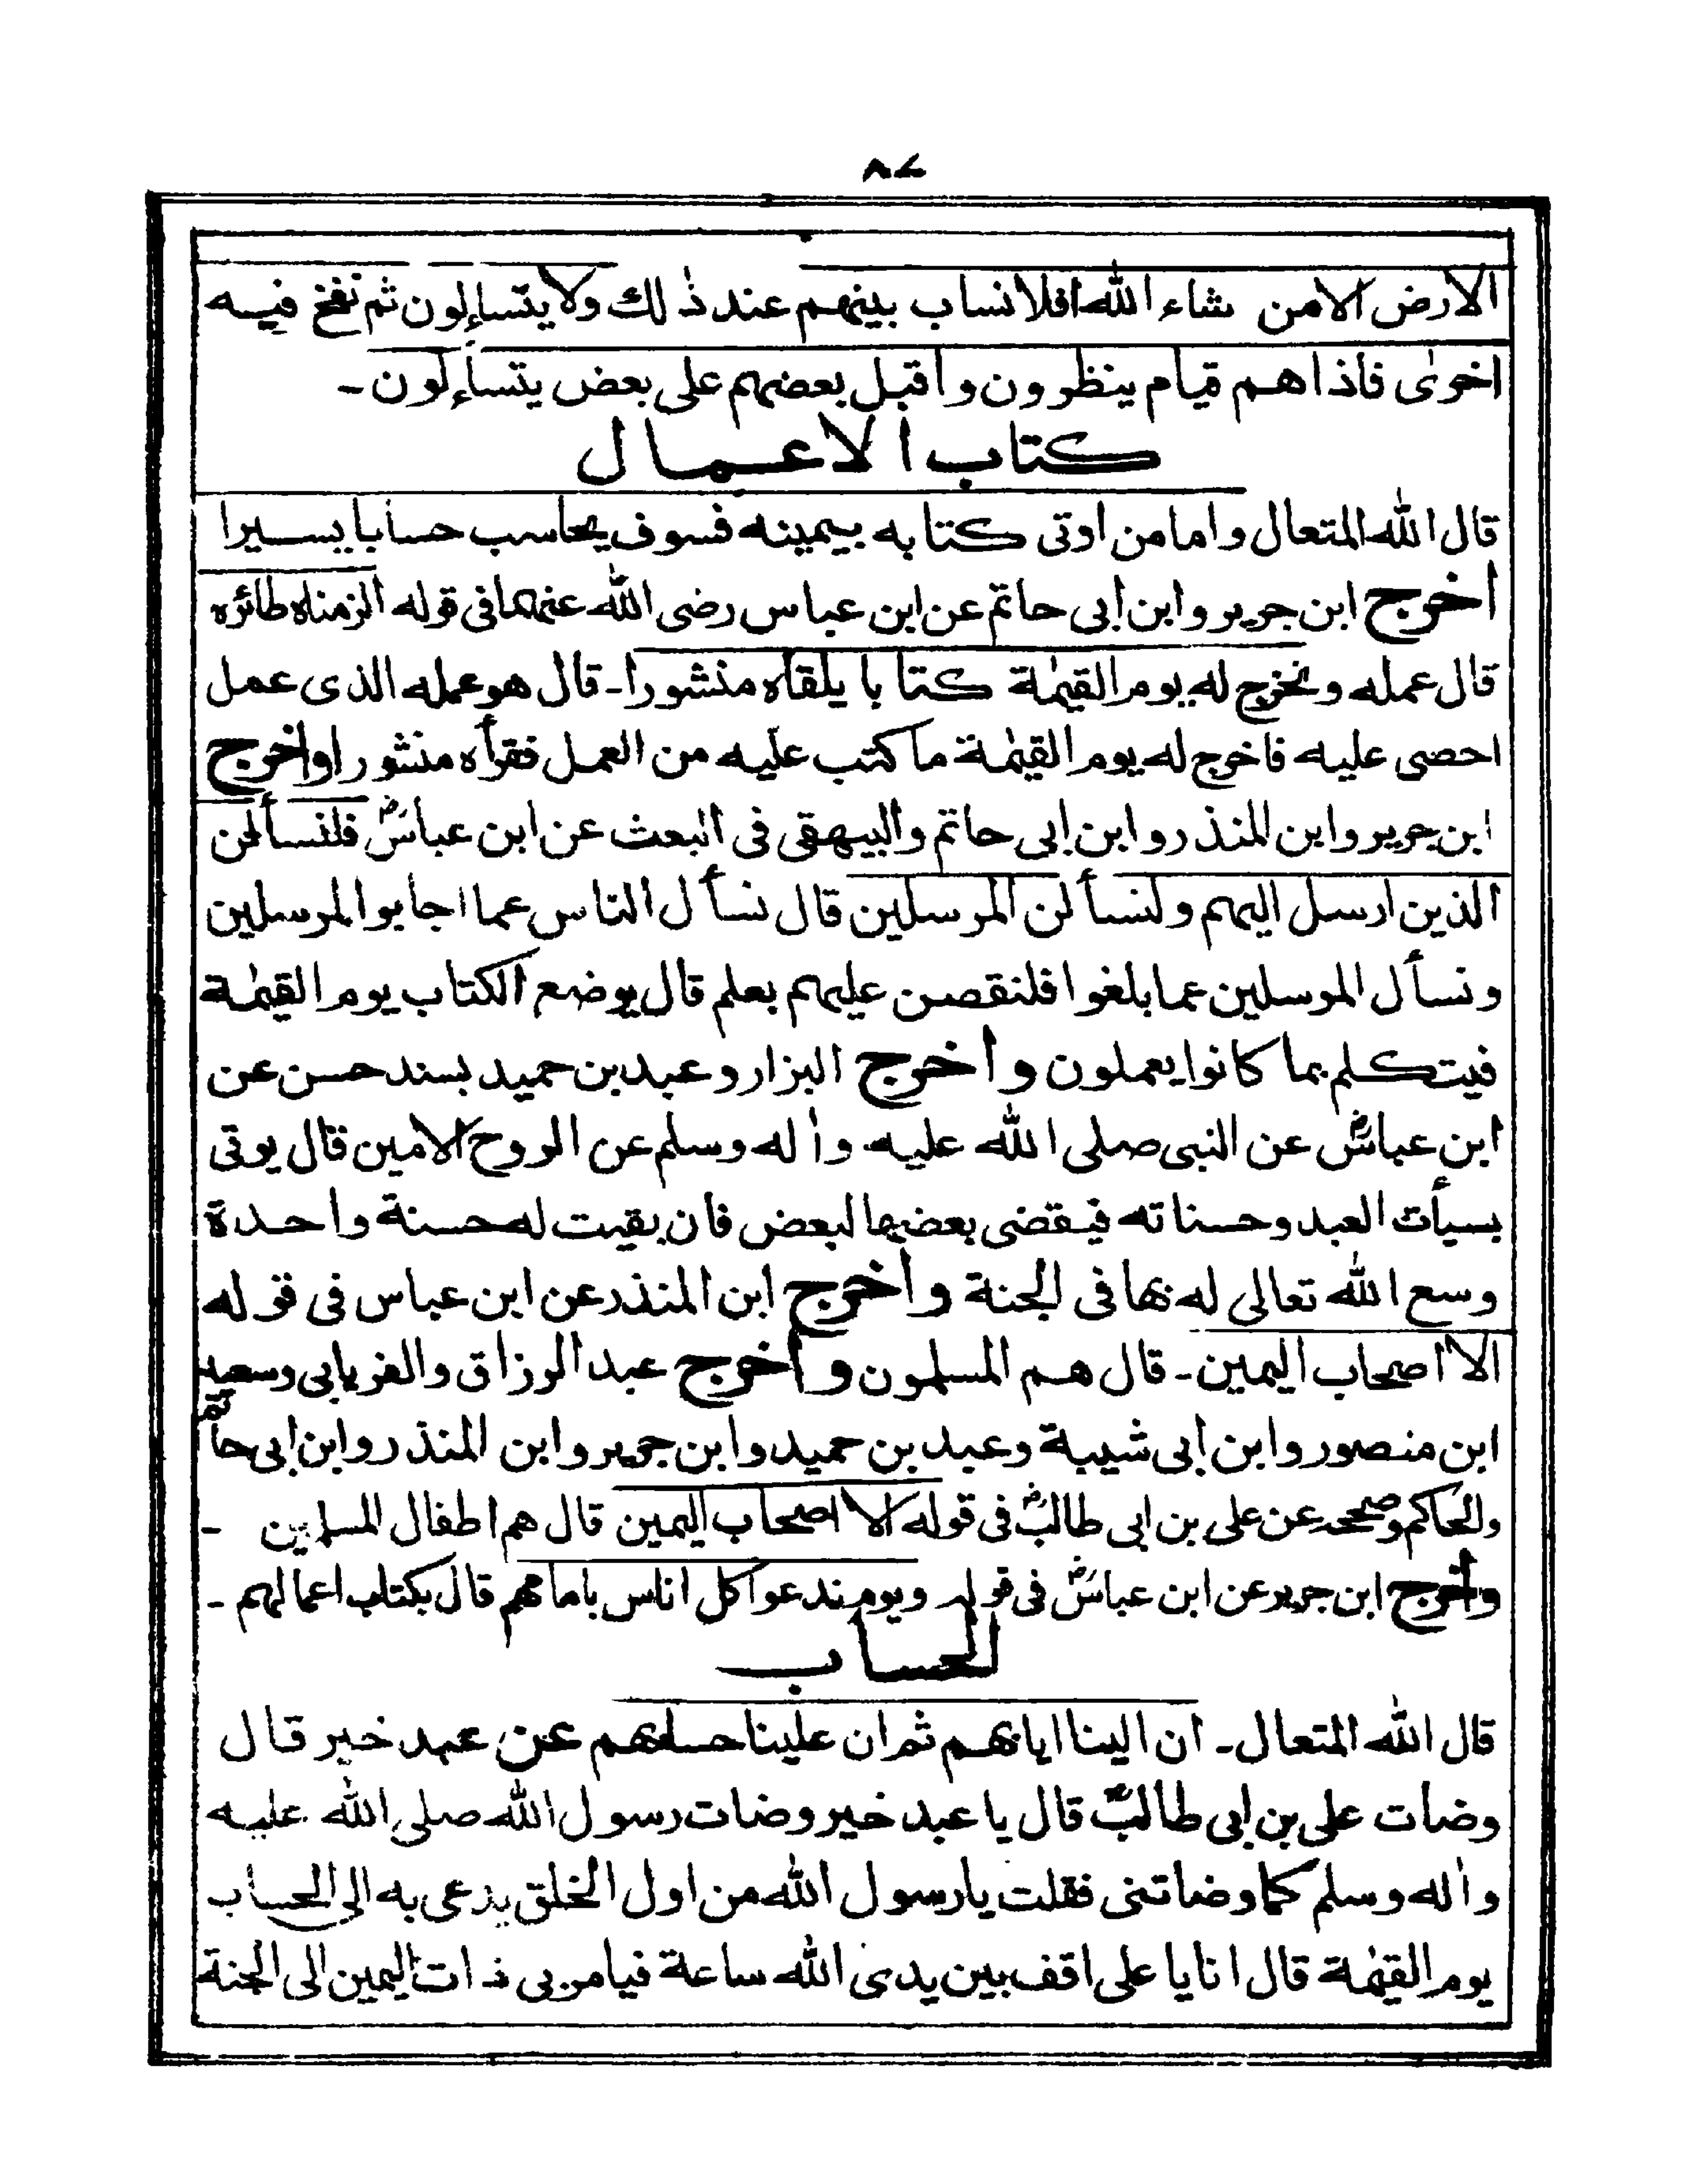 ٨٧
الارض الامن شاء الله افلا انساب بينهم عند ذٰلك ولا يتساءلون ثم نفخ فيه
اخرىٰ فاذا هم قيام ينظرون واقبل بعضهم على بعض يتساءلون۔
كتاب الاعمال
قال الله المتعال واما من اوتى كتابه بيمينه فسوف يحاسب حسابا يسيرا
أخرج ابن جرير وابن أبى حاتم عن ابن عباس رضى الله عنهما فى قوله الزمناه طائره
قال عمله ونخرج له يوم القيٰمة كتابا يلقاه منشورا۔ قال هو عمله الذى عمل
احصى عليه فاخرج له يوم القيٰمة ما كتب عليه من العمل فقرأه منشورا واخرج
ابن جرير وابن المنذر وابن ابى حاتم والبيهقى فى البعث عن ابن عباسؓ فلنسألن
الذين ارسل اليهم ولنسألن المرسلين قال نسأل الناس عما اجابوا المرسلين
ونسأل المرسلين عما بلغوا فلنقصن عليهم بعلم قال يوضع الكتاب يوم القيٰمة
فيتكلم بما كانوا يعملون وأخرج البزار وعبد بن حميد بسند حسن عن
ابن عباسؓ عن النبى صلى الله عليه واٰله وسلم عن الروح الامين قال يوتى
بسيأت العبد وحسناته فيقضى بعضها لبعض فان بقيت له حسنة واحدة
وسع الله تعالى له بها فى الجنة وأخرج ابن المنذر عن ابن عباس فى قوله
الا اصحاب اليمين۔ قال هم المسلمون وأخرج عبد الرزاق والفريابى وسعيد
ابن منصور وابن أبى شيبة وعبد بن حميد وابن جرير وابن المنذر وابن ابى حاتم
والحاكم وصححه عن على بن ابى طالبؓ فى قوله الا اصحاب اليمين قال هم اطفال المسلمين ۔
وأخرج ابن جرير عن ابن عباسؓ فى قوله ويوم ندعوا كل اناس بامامهم قال بكتاب اعمالهم ۔
الحساب
قال الله المتعال۔ ان الينا ايابهم ثم ان علينا حسابهم عن عبد خير قال
وضات على بن ابى طالبؓ قال يا عبد خير وضات رسول الله صلى الله عليه
واٰله وسلم كما وضاتنى فقلت يا رسول الله من اول الخلق يدعى به الى الحساب
يوم القيٰمة قال انا يا على اقف بين يدى الله ساعة فيامر بى ذات اليمين الى الجنة